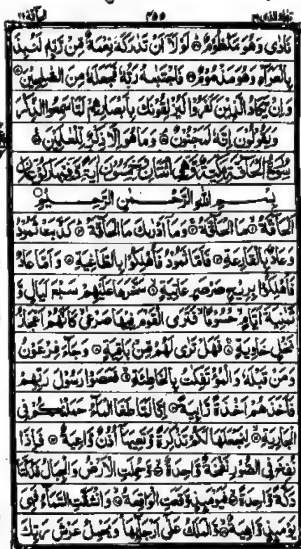 نَادٰى وَهُوَ مَكْظُوْمٌ ۝ لَوْلَاۤ اَنْ تَدٰرَكَهٗ نِعْمَةٌ مِّنْ رَّبِّهٖ لَنُبِذَ
بِالْعَرَآءِ وَهُوَ مَذْمُوْمٌ ۝ فَاجْتَبٰىهُ رَبُّهٗ فَجَعَلَهٗ مِنَ الصّٰلِحِيْنَ ۝
وَاِنْ يَّكَادُ الَّذِيْنَ كَفَرُوْا لَيُزْلِقُوْنَكَ بِاَبْصَارِهِمْ لَمَّا سَمِعُوا الذِّكْرَ
وَيَقُوْلُوْنَ اِنَّهٗ لَمَجْنُوْنٌ ۝ وَمَا هُوَ اِلَّا ذِكْرٌ لِّلْعٰلَمِيْنَ ۝
سُوْرَةُ الْحَآقَّةِ مَكِّيَّةٌ
بِسْمِ اللّٰهِ الرَّحْمٰنِ الرَّحِيْمِ
اَلْحَآقَّةُ ۝ مَا الْحَآقَّةُ ۝ وَمَاۤ اَدْرٰىكَ مَا الْحَآقَّةُ ۝ كَذَّبَتْ ثَمُوْدُ
وَعَادٌۢ بِالْقَارِعَةِ ۝ فَاَمَّا ثَمُوْدُ فَاُهْلِكُوْا بِالطَّاغِيَةِ ۝ وَاَمَّا عَادٌ
فَاُهْلِكُوْا بِرِيْحٍ صَرْصَرٍ عَاتِيَةٍ ۝ سَخَّرَهَا عَلَيْهِمْ سَبْعَ لَيَالٍ وَّ
ثَمٰنِيَةَ اَيَّامٍ حُسُوْمًا فَتَرَى الْقَوْمَ فِيْهَا صَرْعٰى كَاَنَّهُمْ اَعْجَازُ
نَخْلٍ خَاوِيَةٍ ۝ فَهَلْ تَرٰى لَهُمْ مِّنْۢ بَاقِيَةٍ ۝ وَجَآءَ فِرْعَوْنُ
وَمَنْ قَبْلَهٗ وَالْمُؤْتَفِكٰتُ بِالْخَاطِئَةِ ۝ فَعَصَوْا رَسُوْلَ رَبِّهِمْ
فَاَخَذَهُمْ اَخْذَةً رَّابِيَةً ۝ اِنَّا لَمَّا طَغَا الْمَآءُ حَمَلْنٰكُمْ فِى
الْجَارِيَةِ ۝ لِنَجْعَلَهَا لَكُمْ تَذْكِرَةً وَّتَعِيَهَاۤ اُذُنٌ وَّاعِيَةٌ ۝ فَاِذَا
نُفِخَ فِى الصُّوْرِ نَفْخَةٌ وَّاحِدَةٌ ۝ وَّحُمِلَتِ الْاَرْضُ وَالْجِبَالُ فَدُكَّتَا
دَكَّةً وَّاحِدَةً ۝ فَيَوْمَئِذٍ وَّقَعَتِ الْوَاقِعَةُ ۝ وَانْشَقَّتِ السَّمَآءُ فَهِىَ
يَوْمَئِذٍ وَّاهِيَةٌ ۝ وَّالْمَلَكُ عَلٰۤى اَرْجَآئِهَا وَيَحْمِلُ عَرْشَ رَبِّكَ